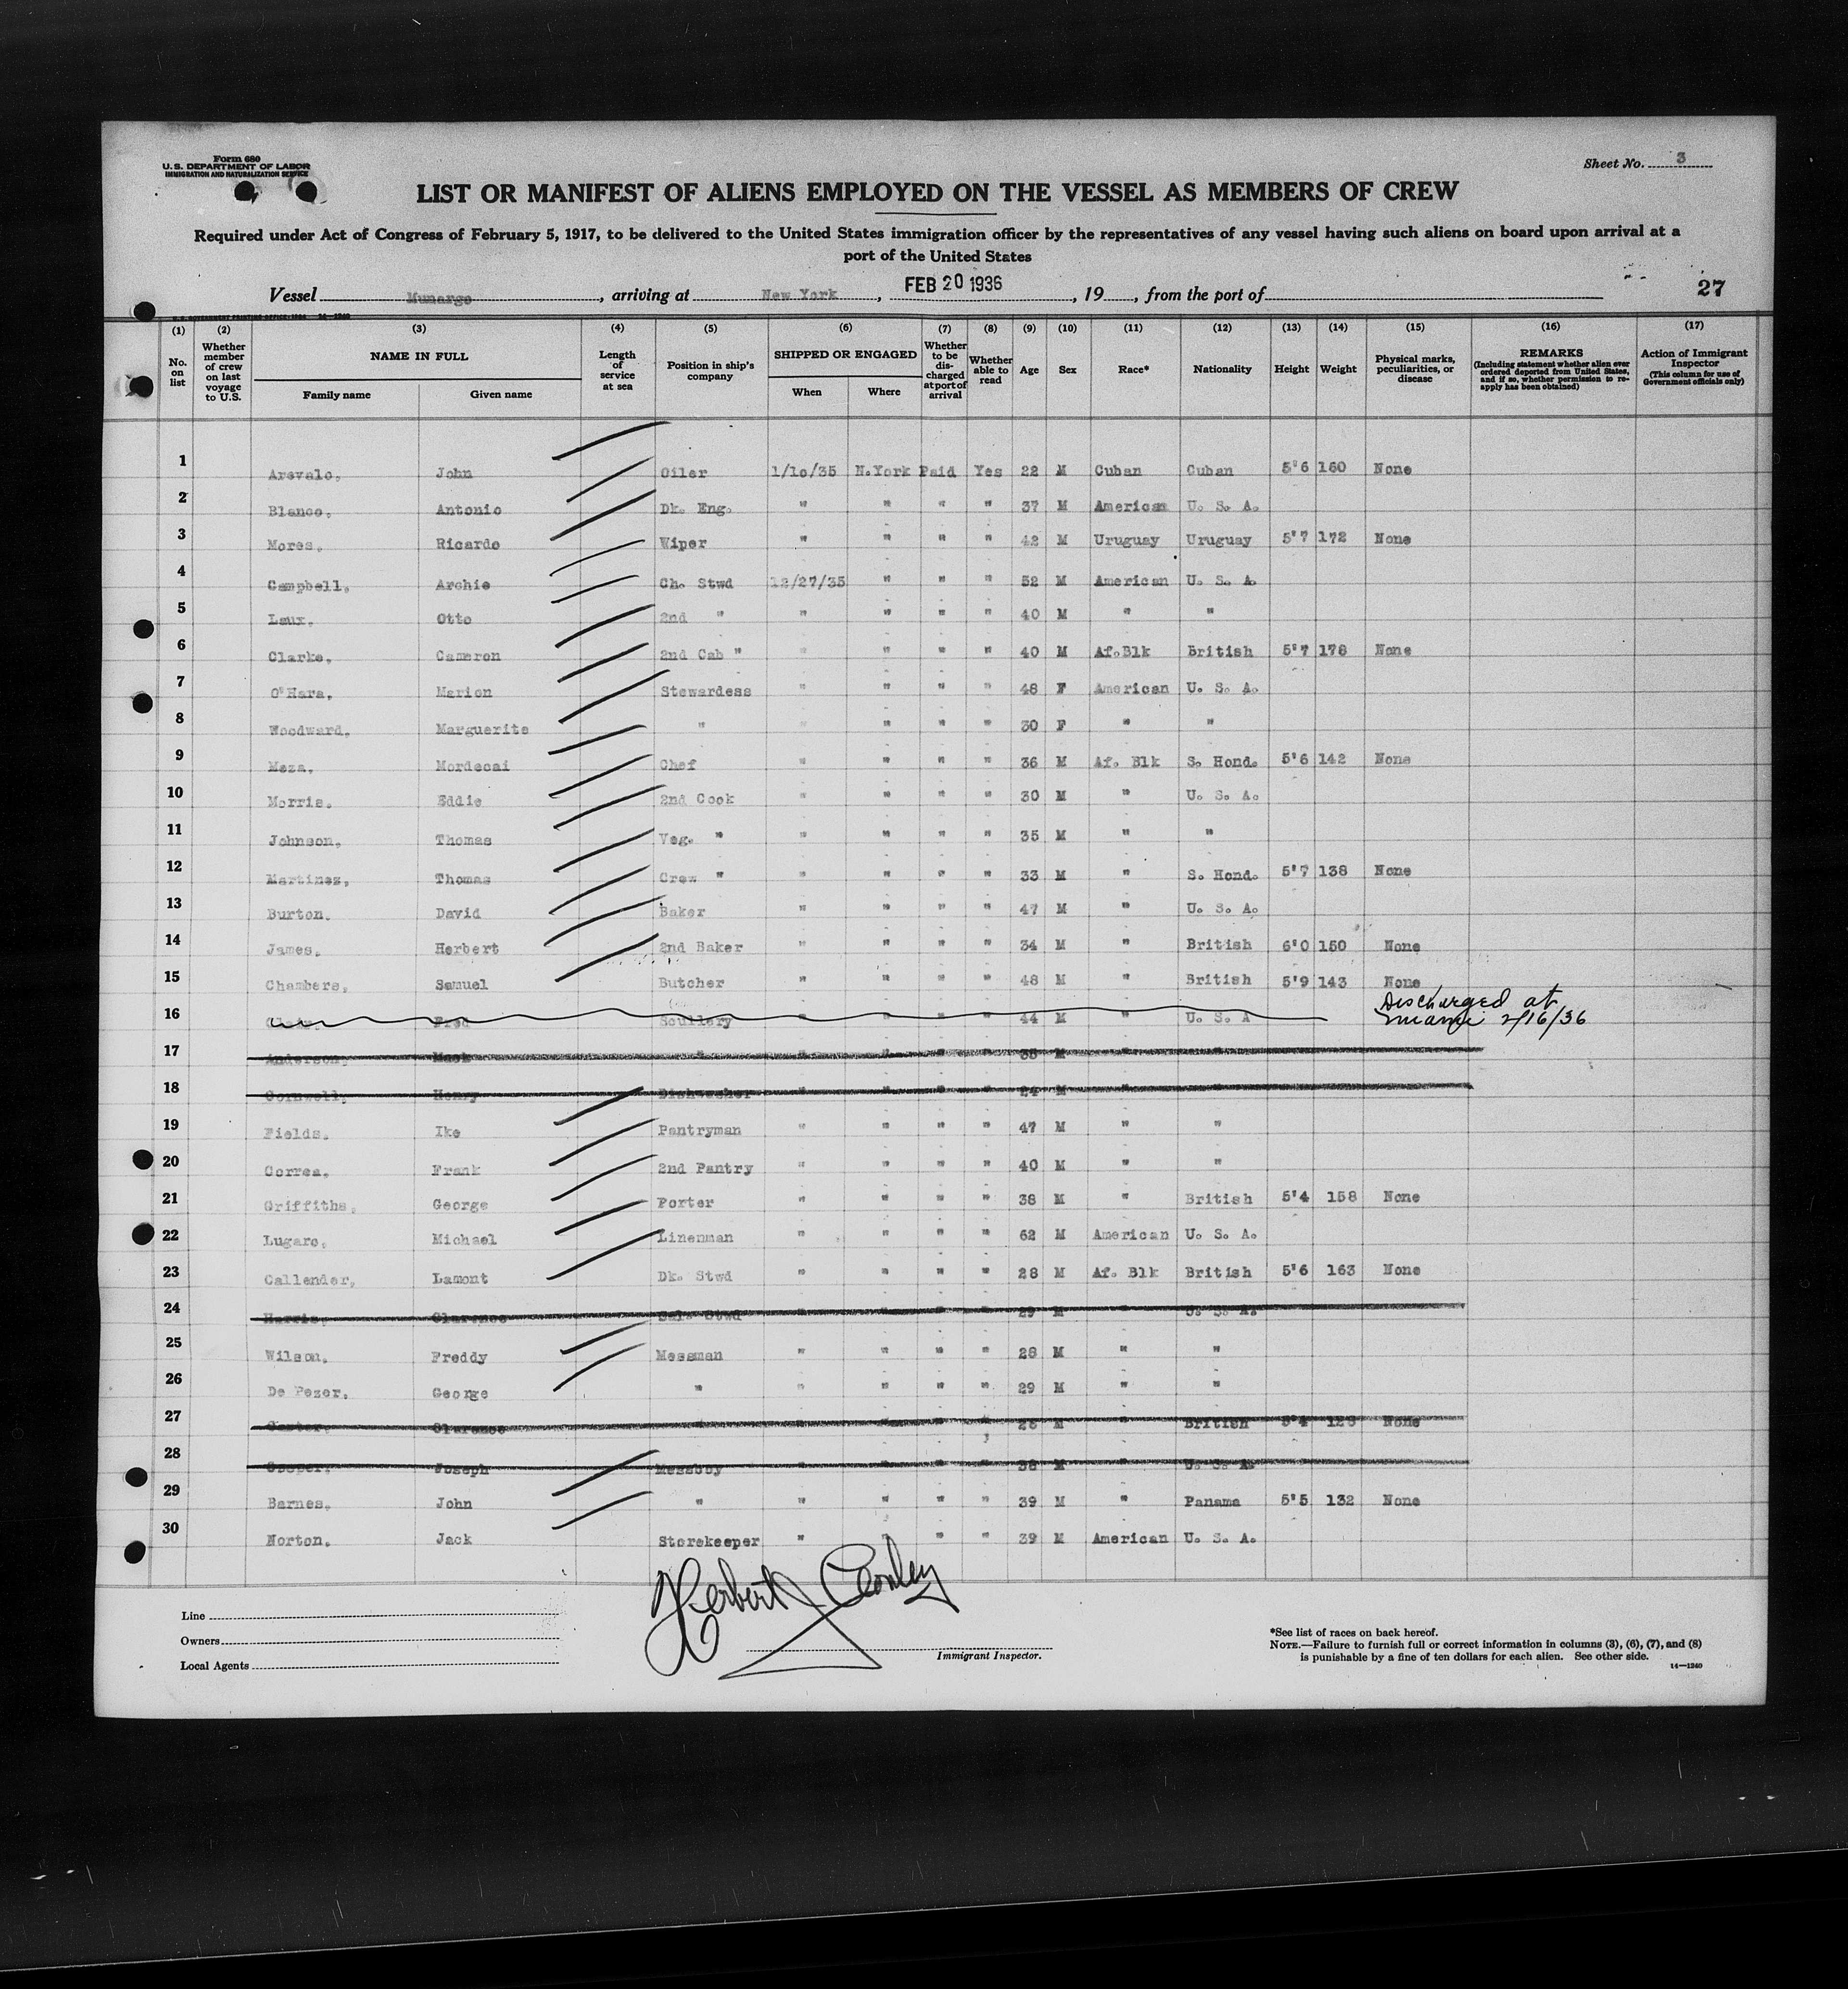 Form 680
U. S. DEPARTMENT OF LABOR
IMMIGRATION AND NATURALIZATION SERVICE
Sheet No. 3
LIST OR MANIFEST OF ALIENS EMPLOYED ON THE VESSEL AS MEMBERS OF CREW
Required under Act of Congress of February 5, 1917, to be delivered to the United States immigration officer by the representatives of any vessel having such aliens on board upon arrival at a
port of the United States
Vessel Munargo, arriving at New York, FEB 20 1936, 19, from the port of 27
(1) (2) (3) (4) (5) (6) (7) (8) (9) (10) (11) (12) (13) (14) (15) (16) (17)
No. on list Whether member of crew on last voyage to U.S. NAME IN FULL Family name Given name Length of service at sea Position in ship's company SHIPPED OR ENGAGED When Where Whether to be discharged at port of arrival Whether able to read Age Sex Race* Nationality Height Weight Physical marks, peculiarities, or disease REMARKS (Including statement whether alien ever ordered deported from United States, and if so, whether permission to re-apply has been obtained) Action of Immigrant Inspector (This column for use of Government officials only)
1 Arevalo, John Oiler 1/10/35 N.York Paid Yes 22 M Cuban Cuban 5'6 160 None
2 Blanco, Antonio Dk. Eng. " " " " 37 M American U. S. A.
3 Mores, Ricardo Wiper " " " " 42 M Uruguay Uruguay 5'7 172 None
4 Campbell, Archie Ch. Stwd 12/27/35 " " " 52 M American U. S. A
5 Laux, Otto 2nd " " " " " 40 M " "
6 Clarke, Cameron 2nd Cab " " " " " 40 M Af.Blk British 5'7 178 None
7 O'Hara, Marion Stewardess " " " " 48 F American U. S. A.
8 Woodward, Marguerite " " " " " 30 F " "
9 Meza, Mordecai Chef " " " " 36 M Af. Blk S. Hond. 5'6 142 None
10 Morris, Eddie 2nd Cook " " " " 30 M " U. S. A.
11 Johnson, Thomas Veg. " " " " " 35 M " "
12 Martinez, Thomas Crew " " " " " 33 M " S. Hond. 5'7 138 None
13 Burton, David Baker " " " " 47 M " U. S. A.
14 James, Herbert 2nd Baker " " " " 34 M " British 6'0 150 None
15 Chambers, Samuel Butcher " " " " 48 M " British 5'9 143 None
16 Fred Scullery " " " " 44 M " U. S. A Discharged at
Miami 2/16/36
17 Anderson, Mack " " " " " 35 M " "
18 Cornwell, Henry Dishwasher " " " " 24 M " "
19 Fields, Ike Pantryman " " " " 47 M " "
20 Correa, Frank 2nd Pantry " " " " 40 M " "
21 Griffiths, George Porter " " " " 38 M " British 5'4 158 None
22 Lugaro, Michael Linenman " " " " 62 M American U. S. A.
23 Callender, Lamont Dk. Stwd " " " " 28 M Af. Blk British 5'6 163 None
24 Harris, Clarence Sal. Stwd " " " " 29 M " U. S. A.
25 Wilson, Freddy Messman " " " " 28 M " "
26 De Pezer, George " " " " " 29 M " "
27 Clarence " " " " " 26 M " British 5'4 128 None
28 Joseph Messboy " " " " 38 M " U. S. A.
29 Barnes, John " " " " " 39 M " Panama 5'5 132 None
30 Norton, Jack Storekeeper " " " " 39 M American U. S. A.
Line
Owners
Local Agents
Immigrant Inspector.
*See list of races on back hereof.
NOTE.—Failure to furnish full or correct information in columns (3), (6), (7), and (8)
is punishable by a fine of ten dollars for each alien. See other side.
14—1240